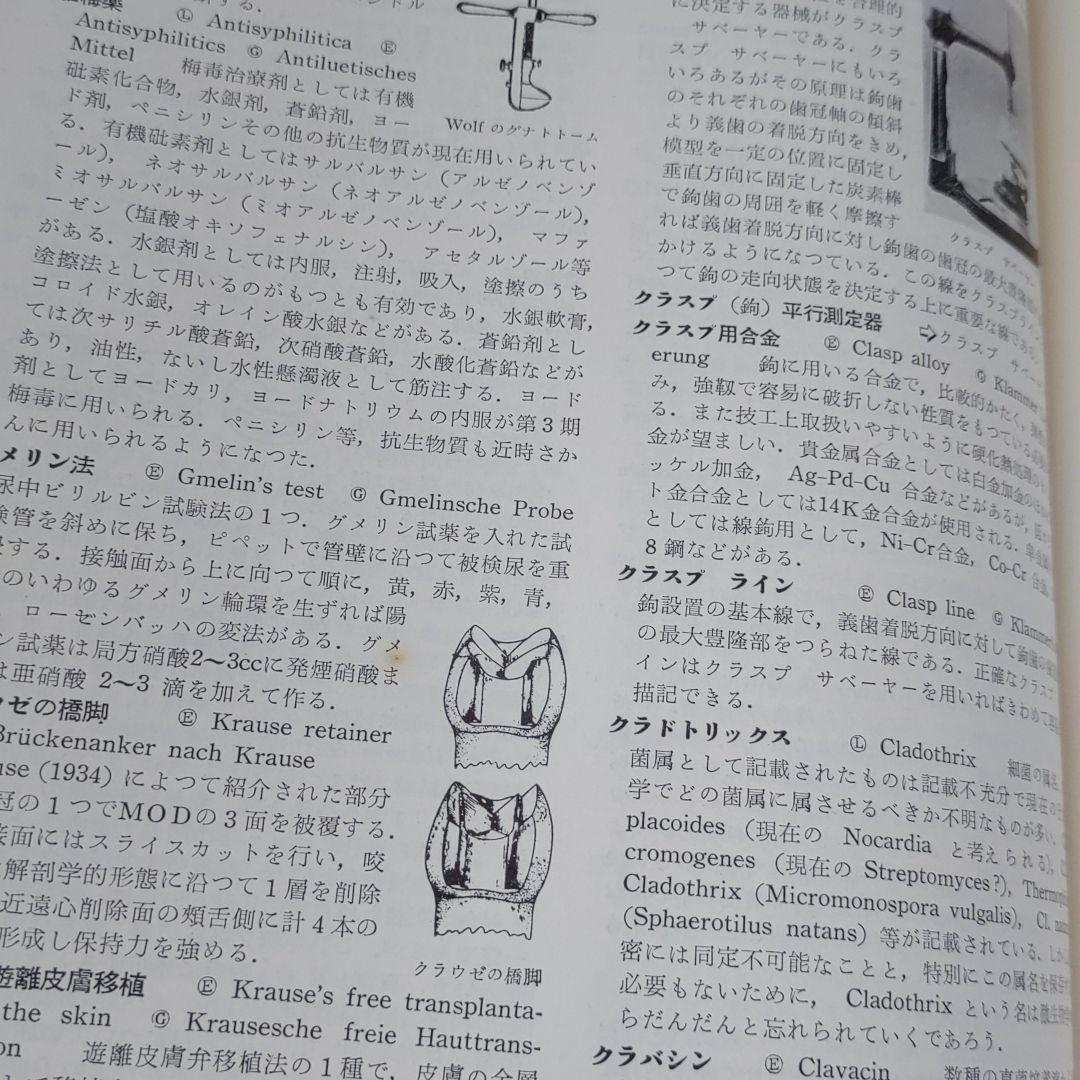 Ⓛ Antisyphilitica Ⓔ
Antisyphilitics Ⓖ Antiluetisches
Mittel 梅毒治療剤としては有機
砒素化合物，水銀剤，蒼鉛剤，ヨー
ド剤，ペニシリンその他の抗生物質が現在用いられてい
る．有機砒素剤としてはサルバルサン（アルゼノベンゾ
ール），ネオサルバルサン（ネオアルゼノベンゾール），
ミオサルバルサン（ミオアルゼノベンゾール），マファ
ーゼン（塩酸オキソフェナルシン），アセタルゾール等
がある．水銀剤としては内服，注射，吸入，塗擦のうち
塗擦法として用いるのがもつとも有効であり，水銀軟膏，
コロイド水銀，オレイン酸水銀などがある．蒼鉛剤とし
ては次サリチル酸蒼鉛，次硝酸蒼鉛，水酸化蒼鉛などが
あり，油性，ないし水性懸濁液として筋注する．ヨード
剤としてヨードカリ，ヨードナトリウムの内服が第3期
梅毒に用いられる．ペニシリン等，抗生物質も近時さか
んに用いられるようになつた．
Wolf のグナトトーム
メリン法 Ⓔ Gmelin's test Ⓖ Gmelinsche Probe
尿中ビリルビン試験法の1つ．グメリン試薬を入れた試
験管を斜めに保ち，ピペットで管壁に沿つて被検尿を重
する．接触面から上に向つて順に，黄，赤，紫，青，
のいわゆるグメリン輪環を生ずれば陽
．ローゼンバッハの変法がある．グメ
ン試薬は局方硝酸2〜3ccに発煙硝酸ま
は亜硝酸 2〜3 滴を加えて作る．
ウゼの橋脚 Ⓔ Krause retainer
Brückenanker nach Krause
use (1934) によつて紹介された部分
冠の1つでMODの3面を被覆する．
接面にはスライスカットを行い，咬
解剖学的形態に沿つて1層を削除
近遠心削除面の頰舌側に計4本の
形成し保持力を強める．
クラウゼの橋脚
遊離皮膚移植 Ⓔ Krause's free transplanta-
the skin Ⓖ Krausesche freie Hauttrans-
on 遊離皮膚弁移植法の1種で，皮膚の全層
に決定する器械がクラスプ
サベーヤーである．クラ
スプ サベーヤーにもいろ
いろあるがその原理は鉤歯
のそれぞれの歯冠軸の傾斜
より義歯の着脱方向をきめ，
模型を一定の位置に固定し
垂直方向に固定した炭素棒
で鉤歯の周囲を軽く摩擦す
れば義歯着脱方向に対し鉤歯の歯冠の最大豊隆
かけるようになつている．この線をクラスプライン
つて鉤の走向状態を決定する上に重要な線である．
クラスプ サベーヤー
クラスプ（鉤）平行測定器 ⇨クラスプ サベーヤ
クラスプ用合金 Ⓔ Clasp alloy Ⓖ Klammer
erung 鉤に用いる合金で，比較的かたく，
み，強靱で容易に破折しない性質をもつている
る．また技工上取扱いやすいように硬化熱処理の
金が望ましい．貴金属合金としては白金加金の
ッケル加金，Ag-Pd-Cu 合金などがあるが，
ト金合金としては14K金合金が使用される．
としては線鉤用として，Ni-Cr合金，Co-Cr 合金，
8 鋼などがある．
クラスプ ライン Ⓔ Clasp line Ⓖ Klammer
鉤設置の基本線で，義歯着脱方向に対して鉤歯の
の最大豊隆部をつらねた線である．正確なクラスプ
インはクラスプ サベーヤーを用いればきわめて
描記できる．
クラドトリックス Ⓛ Cladothrix 細菌の属名．
菌属として記載されたものは記載不充分で現在の
学でどの菌属に属させるべきか不明なものが多い．
placoides（現在の Nocardia と考えられる），
cromogenes（現在の Streptomyces?），Thermo
Cladothrix (Micromonospora vulgalis)，Cl.
(Sphaerotilus natans) 等が記載されている．しか
密には同定不可能なことと，特別にこの属名を保
必要もないために，Cladothrix という名は
らだんだんと忘れられていくであろう．
クラバシン Ⓔ Clavacin 数種の真菌